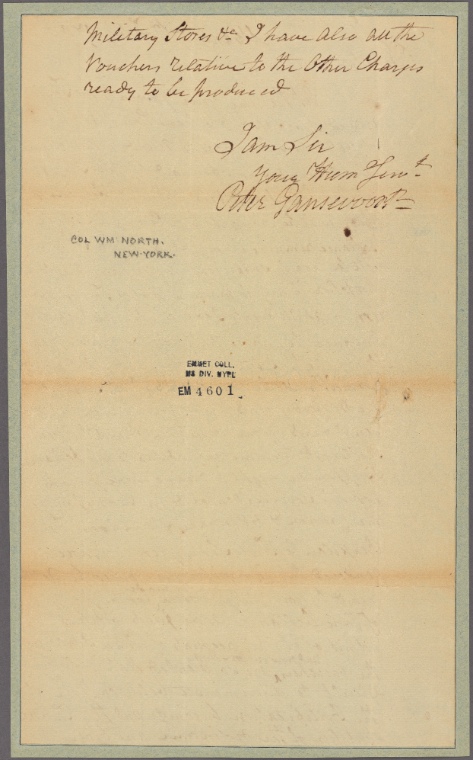 Military Stores &c I have also all the
Vouchers relative to the Other Charges
ready to be produced
I am Sir
Your Hum Servt
Peter Gansevoort
COL WM NORTH.
NEW-YORK.
EMMET COLL.
MS DIV. NYPL
EM 4601